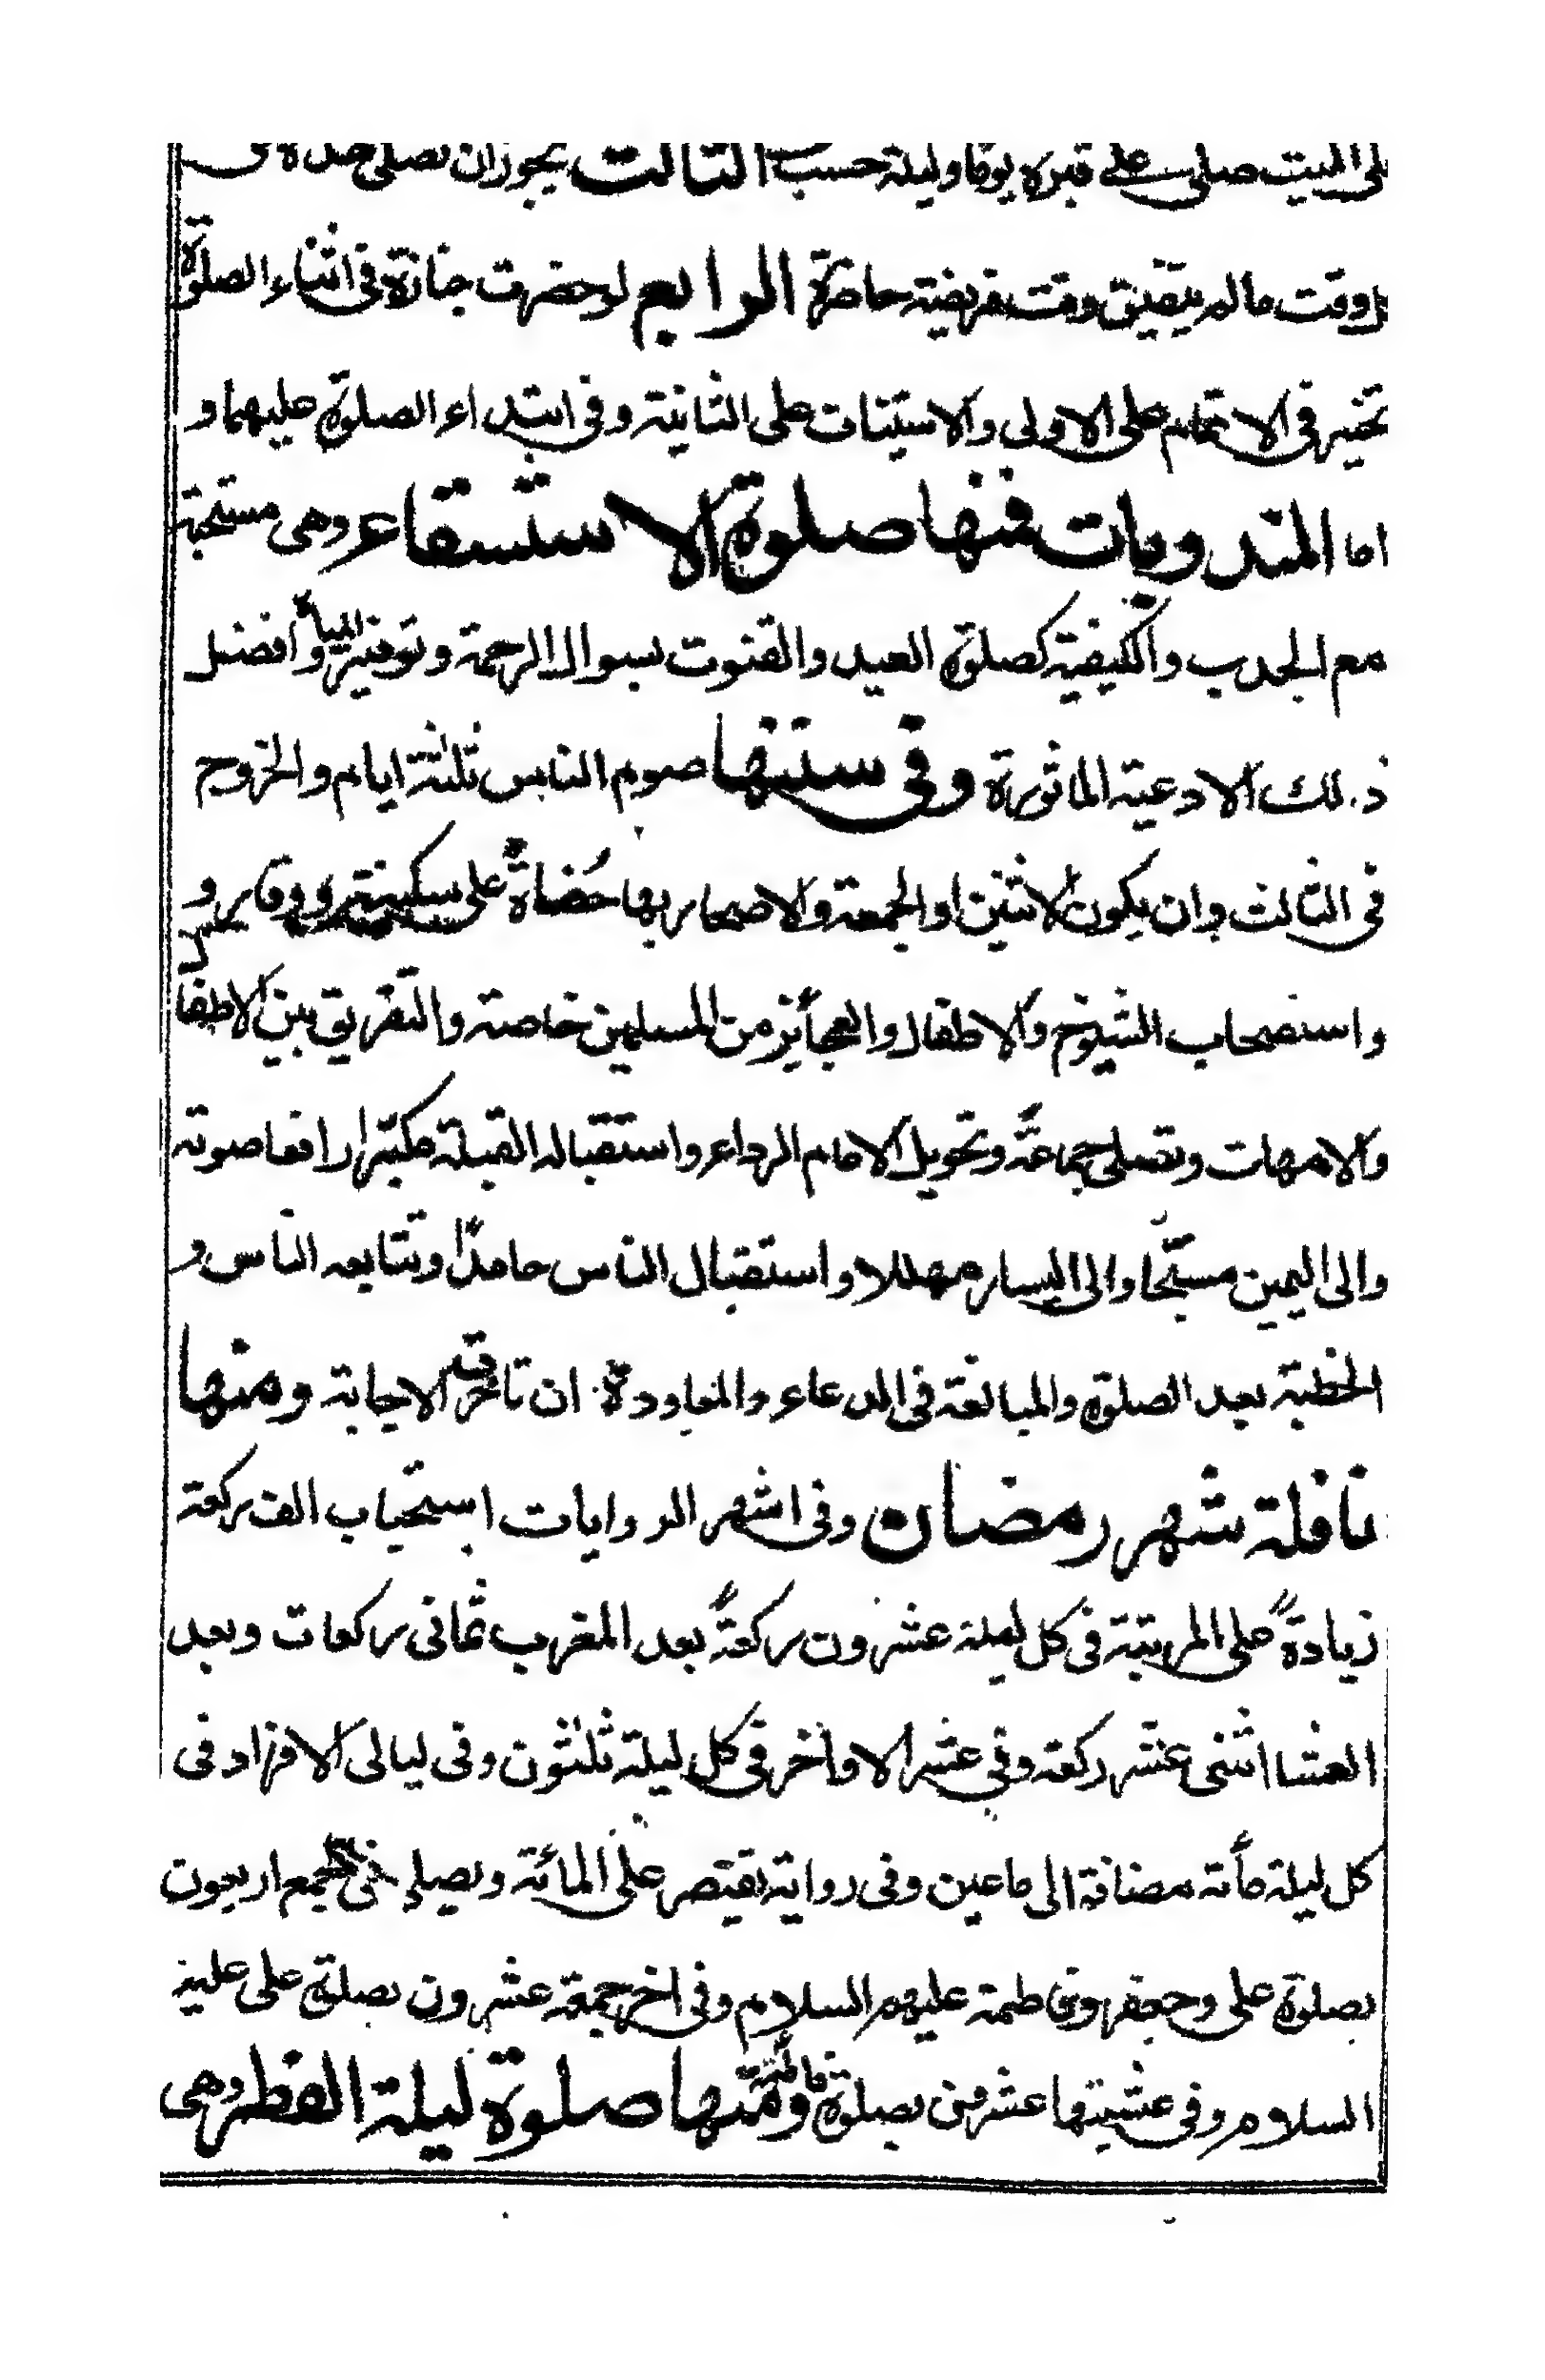 على الميت صلى على قبره يوما وليلة حسب الثالث يجوز ان تصلى هذه فى
كل وقت ما لم يتضيق وقت فريضة حاضرة الرابع لو حضرت جنازة فى اثناء الصلوة
تخير فى الاتمام على الاولى والاستيناف على الثانية وفى ابتداء الصلوة عليهما و
اما المندوبات فمنها صلوة الاستسقاء وهى مستحبة
مع الجدب والكيفية كصلوة العيد والقنوت بسوال الرحمة وتوفير المياه وافضل
ذلك الادعية الماثورة وفى سننها صوم الناس ثلثة ايام والخروج
فى الثالث وان يكون الاثنين او الجمعة والاصحار بها حُفاةً على سكينة ووقار و
واستصحاب الشيوخ والاطفال والعجائز من المسلمين خاصة والتفريق بين الاطفال
والامهات وتصلى جماعةً وتحويل الامام الرداء واستقباله القبلة مكبّرا رافعا صوته
والى اليمين مسبّحا والى اليسار مهللا واستقبال الناس حامدًا وتتابعه الناس و
الخطبة بعد الصلوة والمبالغة فى الدعاء والمعاودة ان تاخرت الاجابة ومنها
نافلة شهر رمضان وفى اشهر الروايات استحباب الف ركعة
زيادةً على المرتبة فى كل ليلة عشرون ركعةً بعد المغرب ثمانى ركعات وبعد
العشا اثنى عشر ركعة وفى عشر الاواخر فى كل ليلة ثلثون وفى ليالى الافراد فى
كل ليلة مأة مضافة الى ما عين وفى رواية يقتصر على المائة ويصلى فى الجمع اربعون
بصلوة على وجعفر وفاطمة عليهم السلام وفى اخر جمعة عشرون بصلوة على عليه
السلام وفى عشيتها عشرون بصلوة فاطمة ومنها صلوة ليلة الفطر وهى